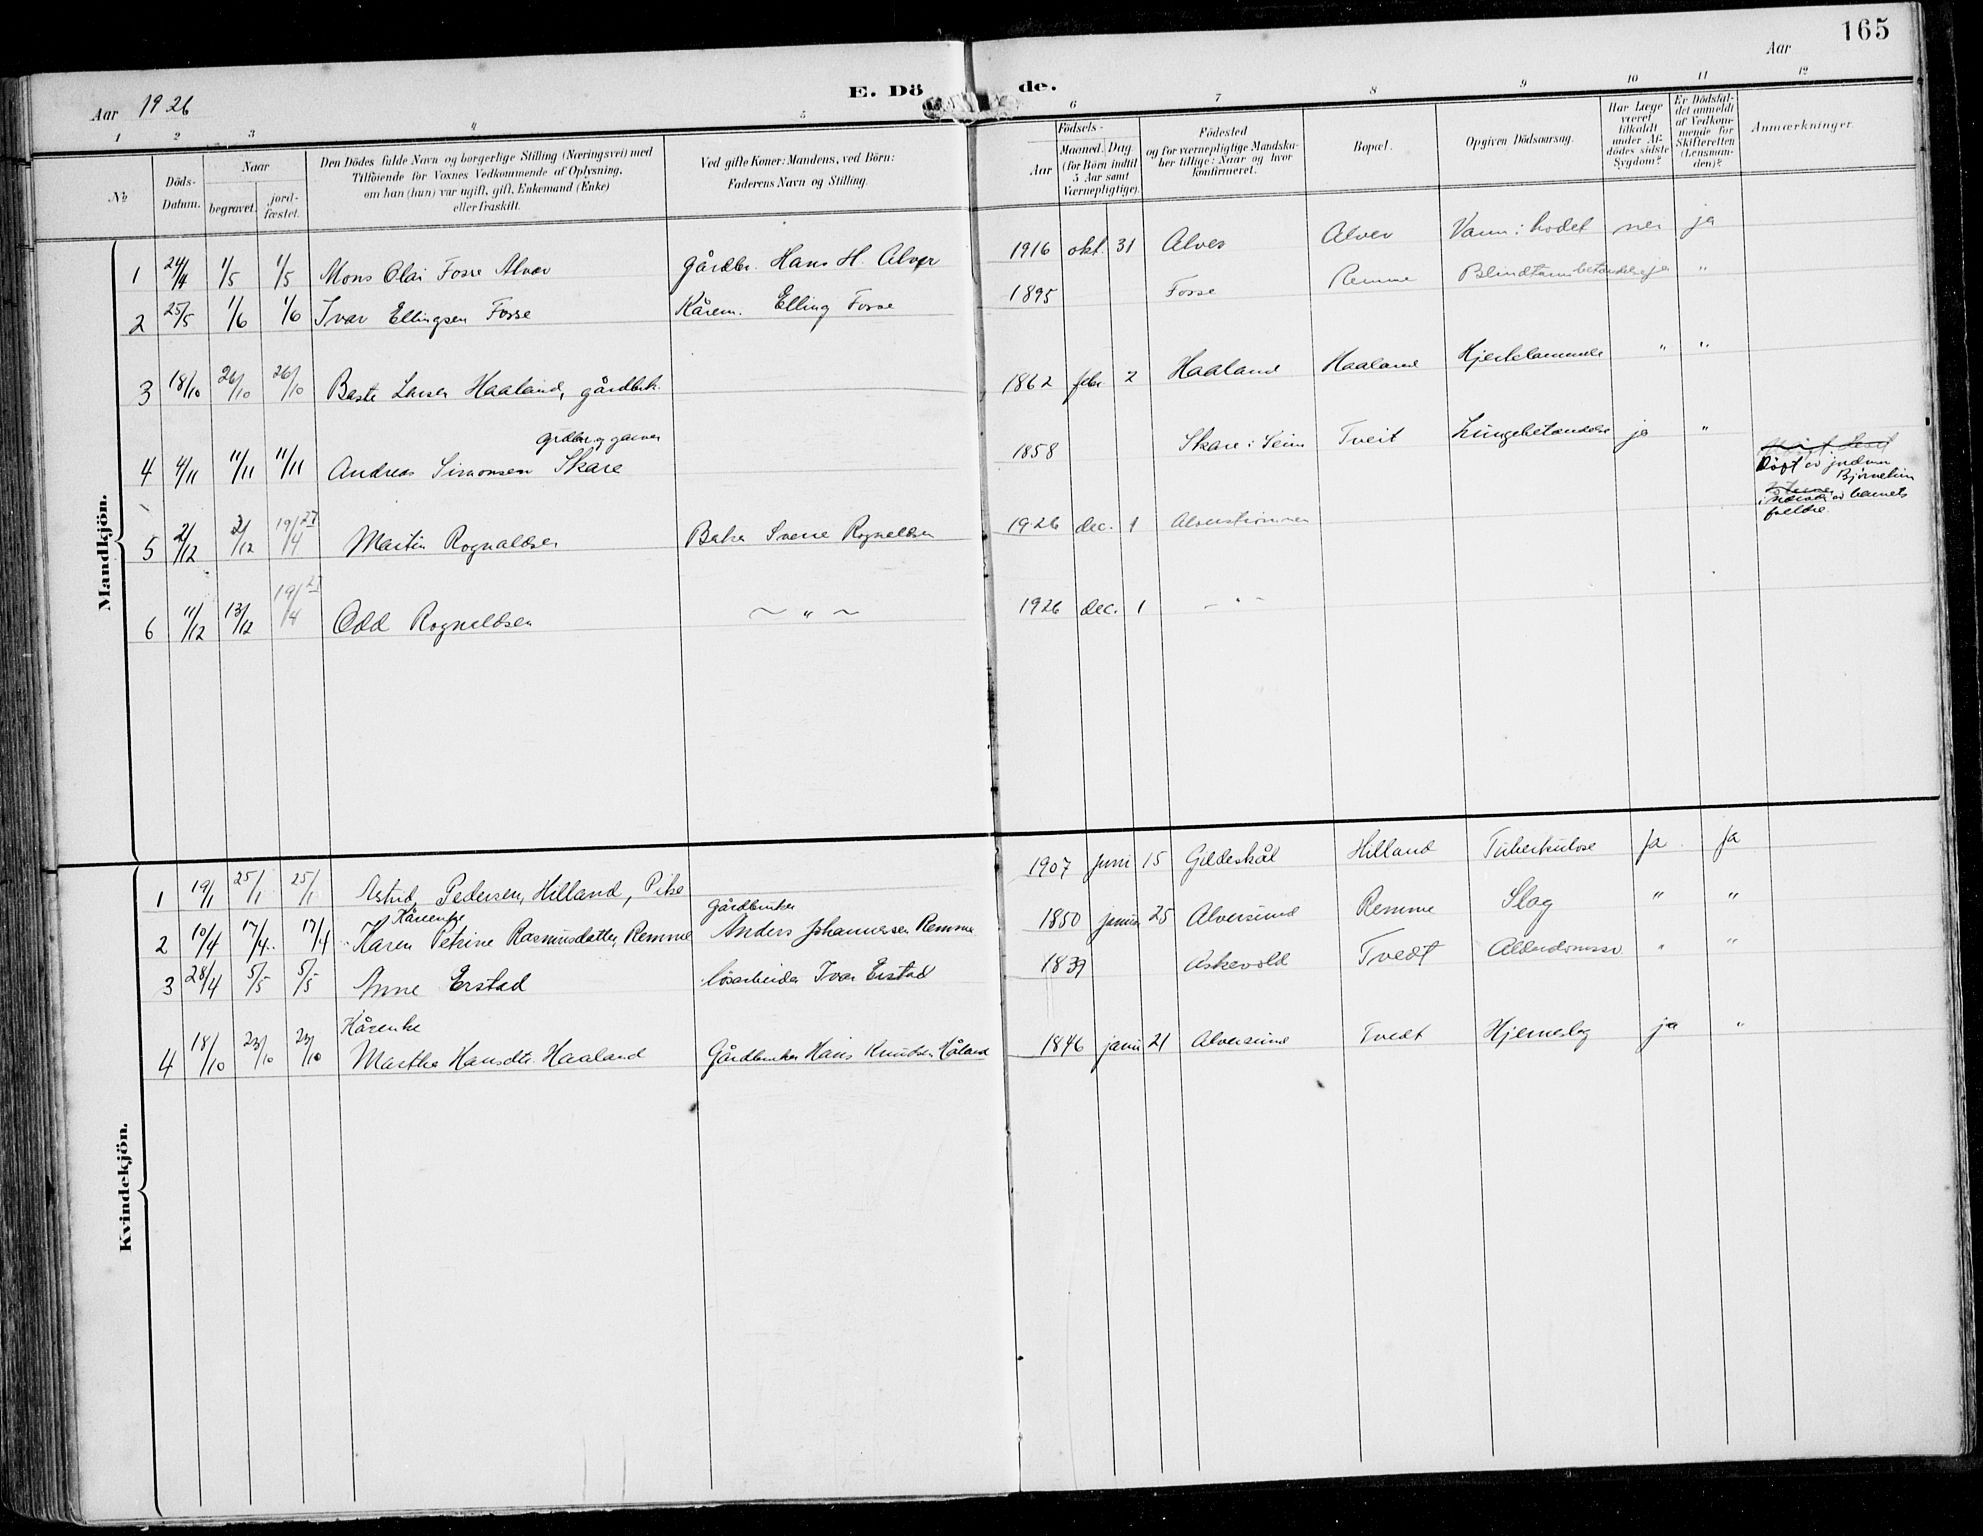 165
Aar 1926
E. Dö de.
Aar
1 2 3 4 5 6 7 8 9 10 11 12
No
Döds-Datum.
Naar
begravet.
jord-fæstet.
Den Dödes fulde Navn og borgerlige Stilling (Næringsvei) med
Tilföiende for Voxnes Vedkommende af Oplysning,
om han (hun) var ugift, gift, Enkemand (Enke)
eller fraskilt.
Ved gifte Koner: Mandens, ved Börn:
Faderens Navn og Stilling.
Födsels-
Aar
Maaned. Dag
(for Börn indtil
5 Aar samt
Værnepligtige).
Födested
og for værnepligtige Mandska-
ber tillige: Naar og hvor
konfirmeret.
Bopæl.
Opgiven Dödsaarsag.
Har Læge
været
tilkaldt
under Af-
dödes sidste
Sygdom?
Er Dödsfal-
det anmeldt
af Vedkom-
mende for
Skifteretten
(Lensman-
den)?
Anmærkninger.
Mandkjön.
1 24/4 1/5 1/5 Mons Olai Fosse Alver Gårdbr. Hans H. Alver 1916 okt. 31 Alver Alver Vann i hodet nei ja
2 25/5 1/6 1/6 Ivar Ellingsen Fosse Kårem. Elling Fosse 1895 Fosse Remme Blindtarmbetændelse ja "
3 18/10 26/10 26/10 Baste Larsen Haaland, gårdbruk. 1862 febr 2 Haaland Haaland Hjertelammelse " "
Grdbr. og garver
4 4/11 11/11 11/11 Andreas Simonsen Skare 1858 Skare i Seim Tveit Lungebetændelse ja "
Döpt av jordmor
Bjørnetun
av barnets
foreldre.
5 2/12 3/12 19/4 27 Martin Rognaldsen Baker Sverre Rognaldsen 1926 dec. 1 Alverströmmen
6 11/12 13/12 19/4 27 Odd Rognaldsen ~ " ~ 1926 dec. 1 - " -
Kvindekjön.
1 19/1 25/1 25/1 Astrid Pedersen, Hilland, Pike 1907 juni 15 Gildeskål Hilland Tuberkulose Ja ja
Kårenke Gårdbruker
2 10/4 17/4 17/4 Karen Petrine Rasmusdatter Remme Anders Johannesen Remme 1850 januar 25 Alversund Remme Slag " "
3 28/4 5/5 5/5 Anne Erstad lösarbeider Ivar Erstad 1839 Askevold Tvedt Alderdomssv " "
Kårenke
4 18/10 23/10 23/10 Martha Hansdtr Haaland Gårdbruker Hans Knudsen Håland 1846 janu 21 Alversund Tvedt Hjerneslag ja "